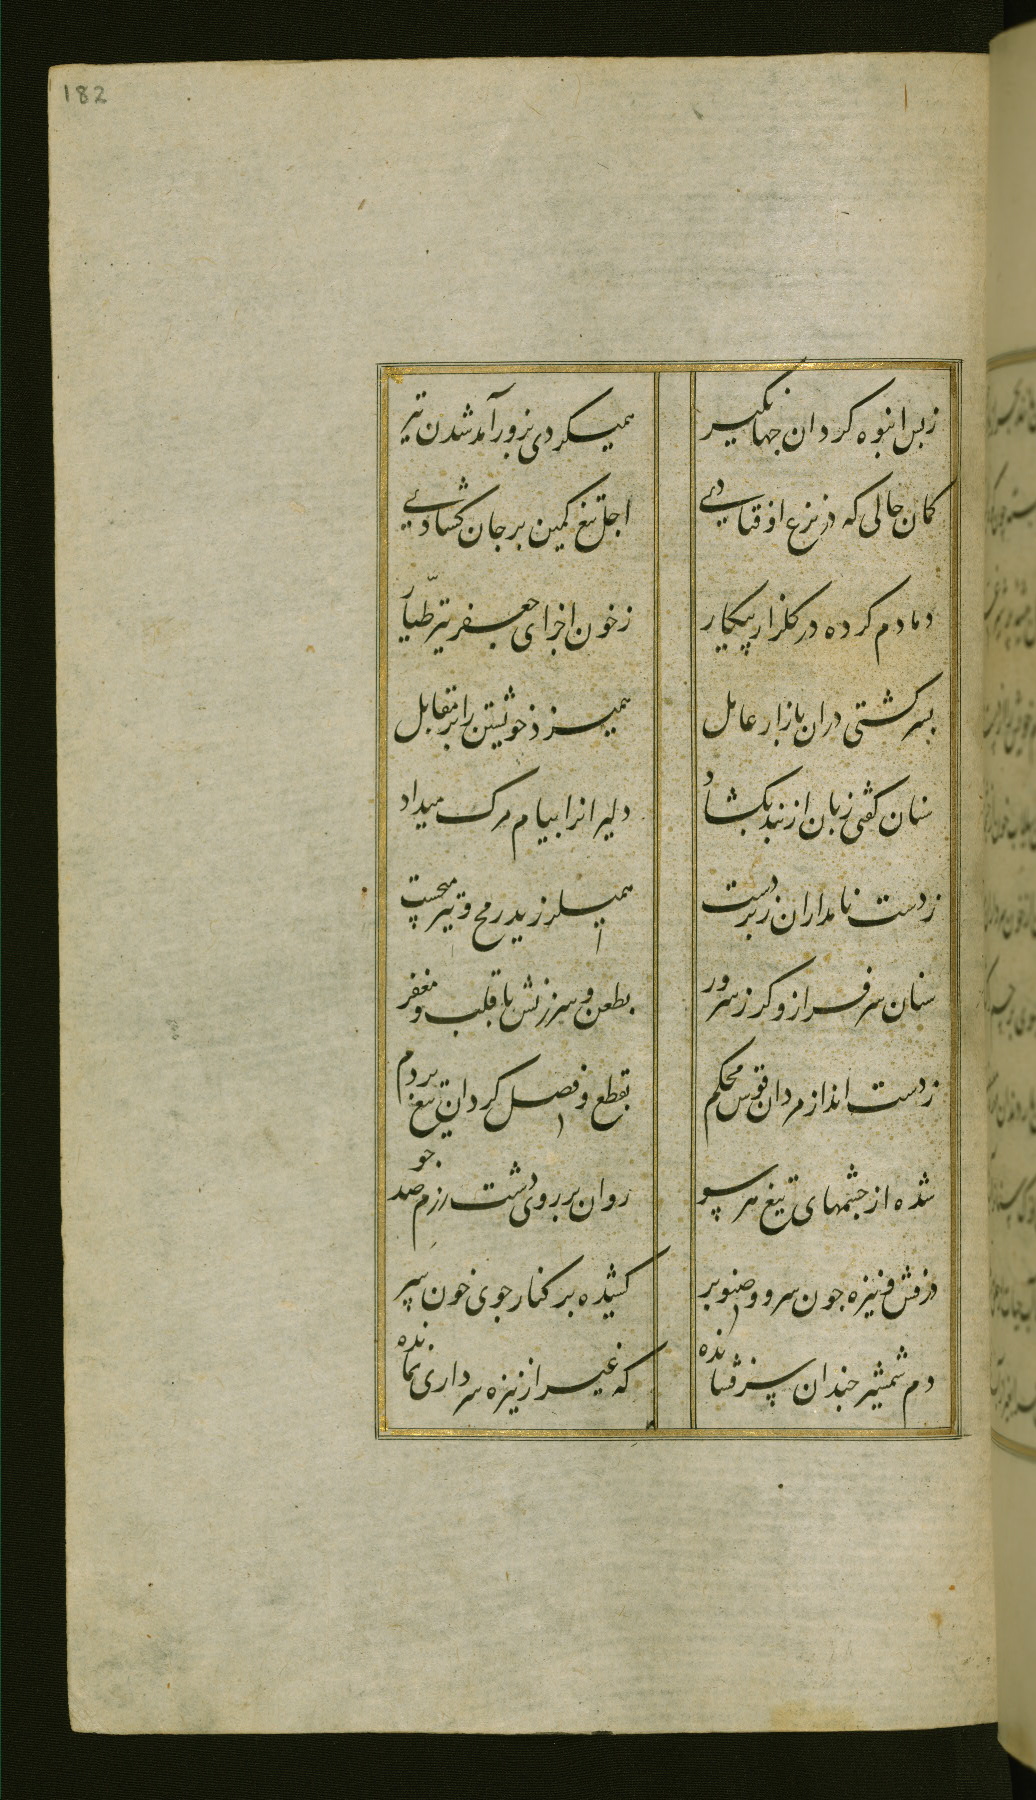 182
زبس انبوه کردان جهانگیر
همیکردی بزور آمد شدن تیر
کمان حالی که در نزع اوفتادی
اجل تیغ کمین بر جان کشادی
دمادم کرده در کلزار پیکار
زخون اجزای جعفر تیر طیّار
بسر کشتی دران بازار عامل
همیزد خویشتن را بر مقابل
سنان کفتی زبان از بند بکشاد
دلیرانرا بیام مرک میداد
زدست نامداران زبردست
همیلرزید رمح و تیر میجست
سنان سرفراز و کرز سرور
بطعن و سرزنش با قلب و مغفر
زدست انداز مردان قوس محکم
بقطع و فصل کردان تیغ بردم
شده از چشمهای تیغ هر سو
روان بر روی دشت رزم صد جو
درفش و نیزه جون سرو و صنوبر
کشیده بر کنار جوی خون سر
دم شمشیر جندان سر فشانده
که غیر از نیزه سرداری نمانده